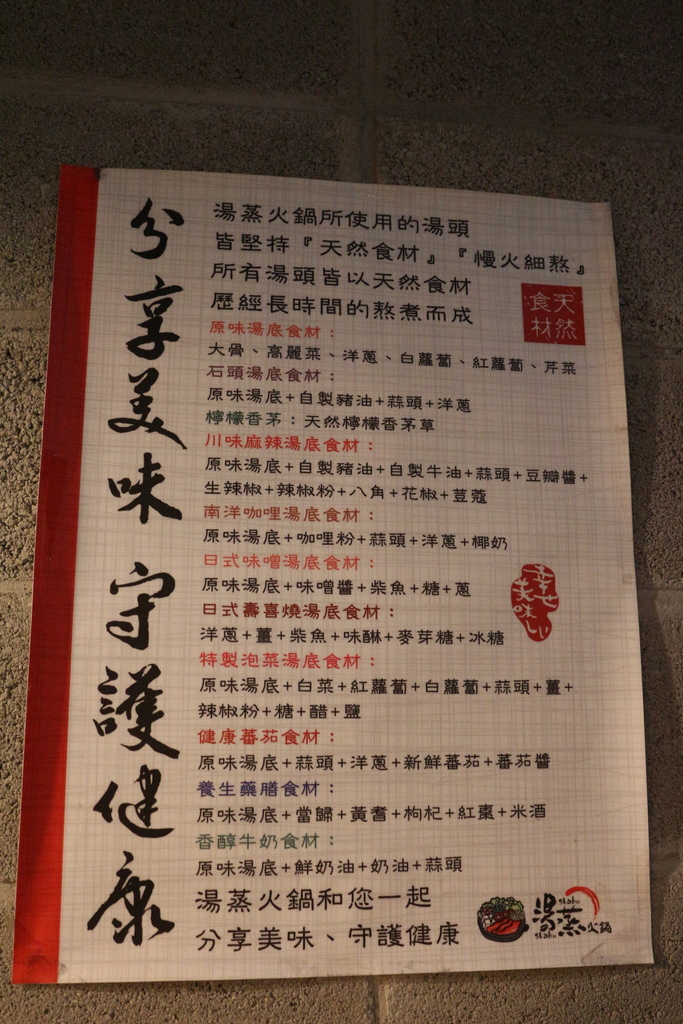 分享美味 守護健康
湯蒸火鍋所使用的湯頭
皆堅持『天然食材』『慢火細熬』
所有湯頭皆以天然食材
歷經長時間的熬煮而成
天然
食材
原味湯底食材：
大骨、高麗菜、洋蔥、白蘿蔔、紅蘿蔔、芹菜
石頭湯底食材：
原味湯底+自製豬油+蒜頭+洋蔥
檸檬香茅：天然檸檬香茅草
川味麻辣湯底食材：
原味湯底+自製豬油+自製牛油+蒜頭+豆瓣醬+
生辣椒+辣椒粉+八角+花椒+荳蔻
南洋咖哩湯底食材：
原味湯底+咖哩粉+蒜頭+洋蔥+椰奶
日式味噌湯底食材：
原味湯底+味噌醬+柴魚+糖+蔥
幸せ
美味しい
日式壽喜燒湯底食材：
洋蔥+薑+柴魚+味醂+麥芽糖+冰糖
特製泡菜湯底食材：
原味湯底+白菜+紅蘿蔔+白蘿蔔+蒜頭+薑+
辣椒粉+糖+醋+鹽
健康蕃茄食材：
原味湯底+蒜頭+洋蔥+新鮮蕃茄+蕃茄醬
養生藥膳食材：
原味湯底+當歸+黃耆+枸杞+紅棗+米酒
香醇牛奶食材：
原味湯底+鮮奶油+奶油+蒜頭
湯蒸火鍋和您一起
分享美味、守護健康
shabu
湯蒸火鍋
shabu